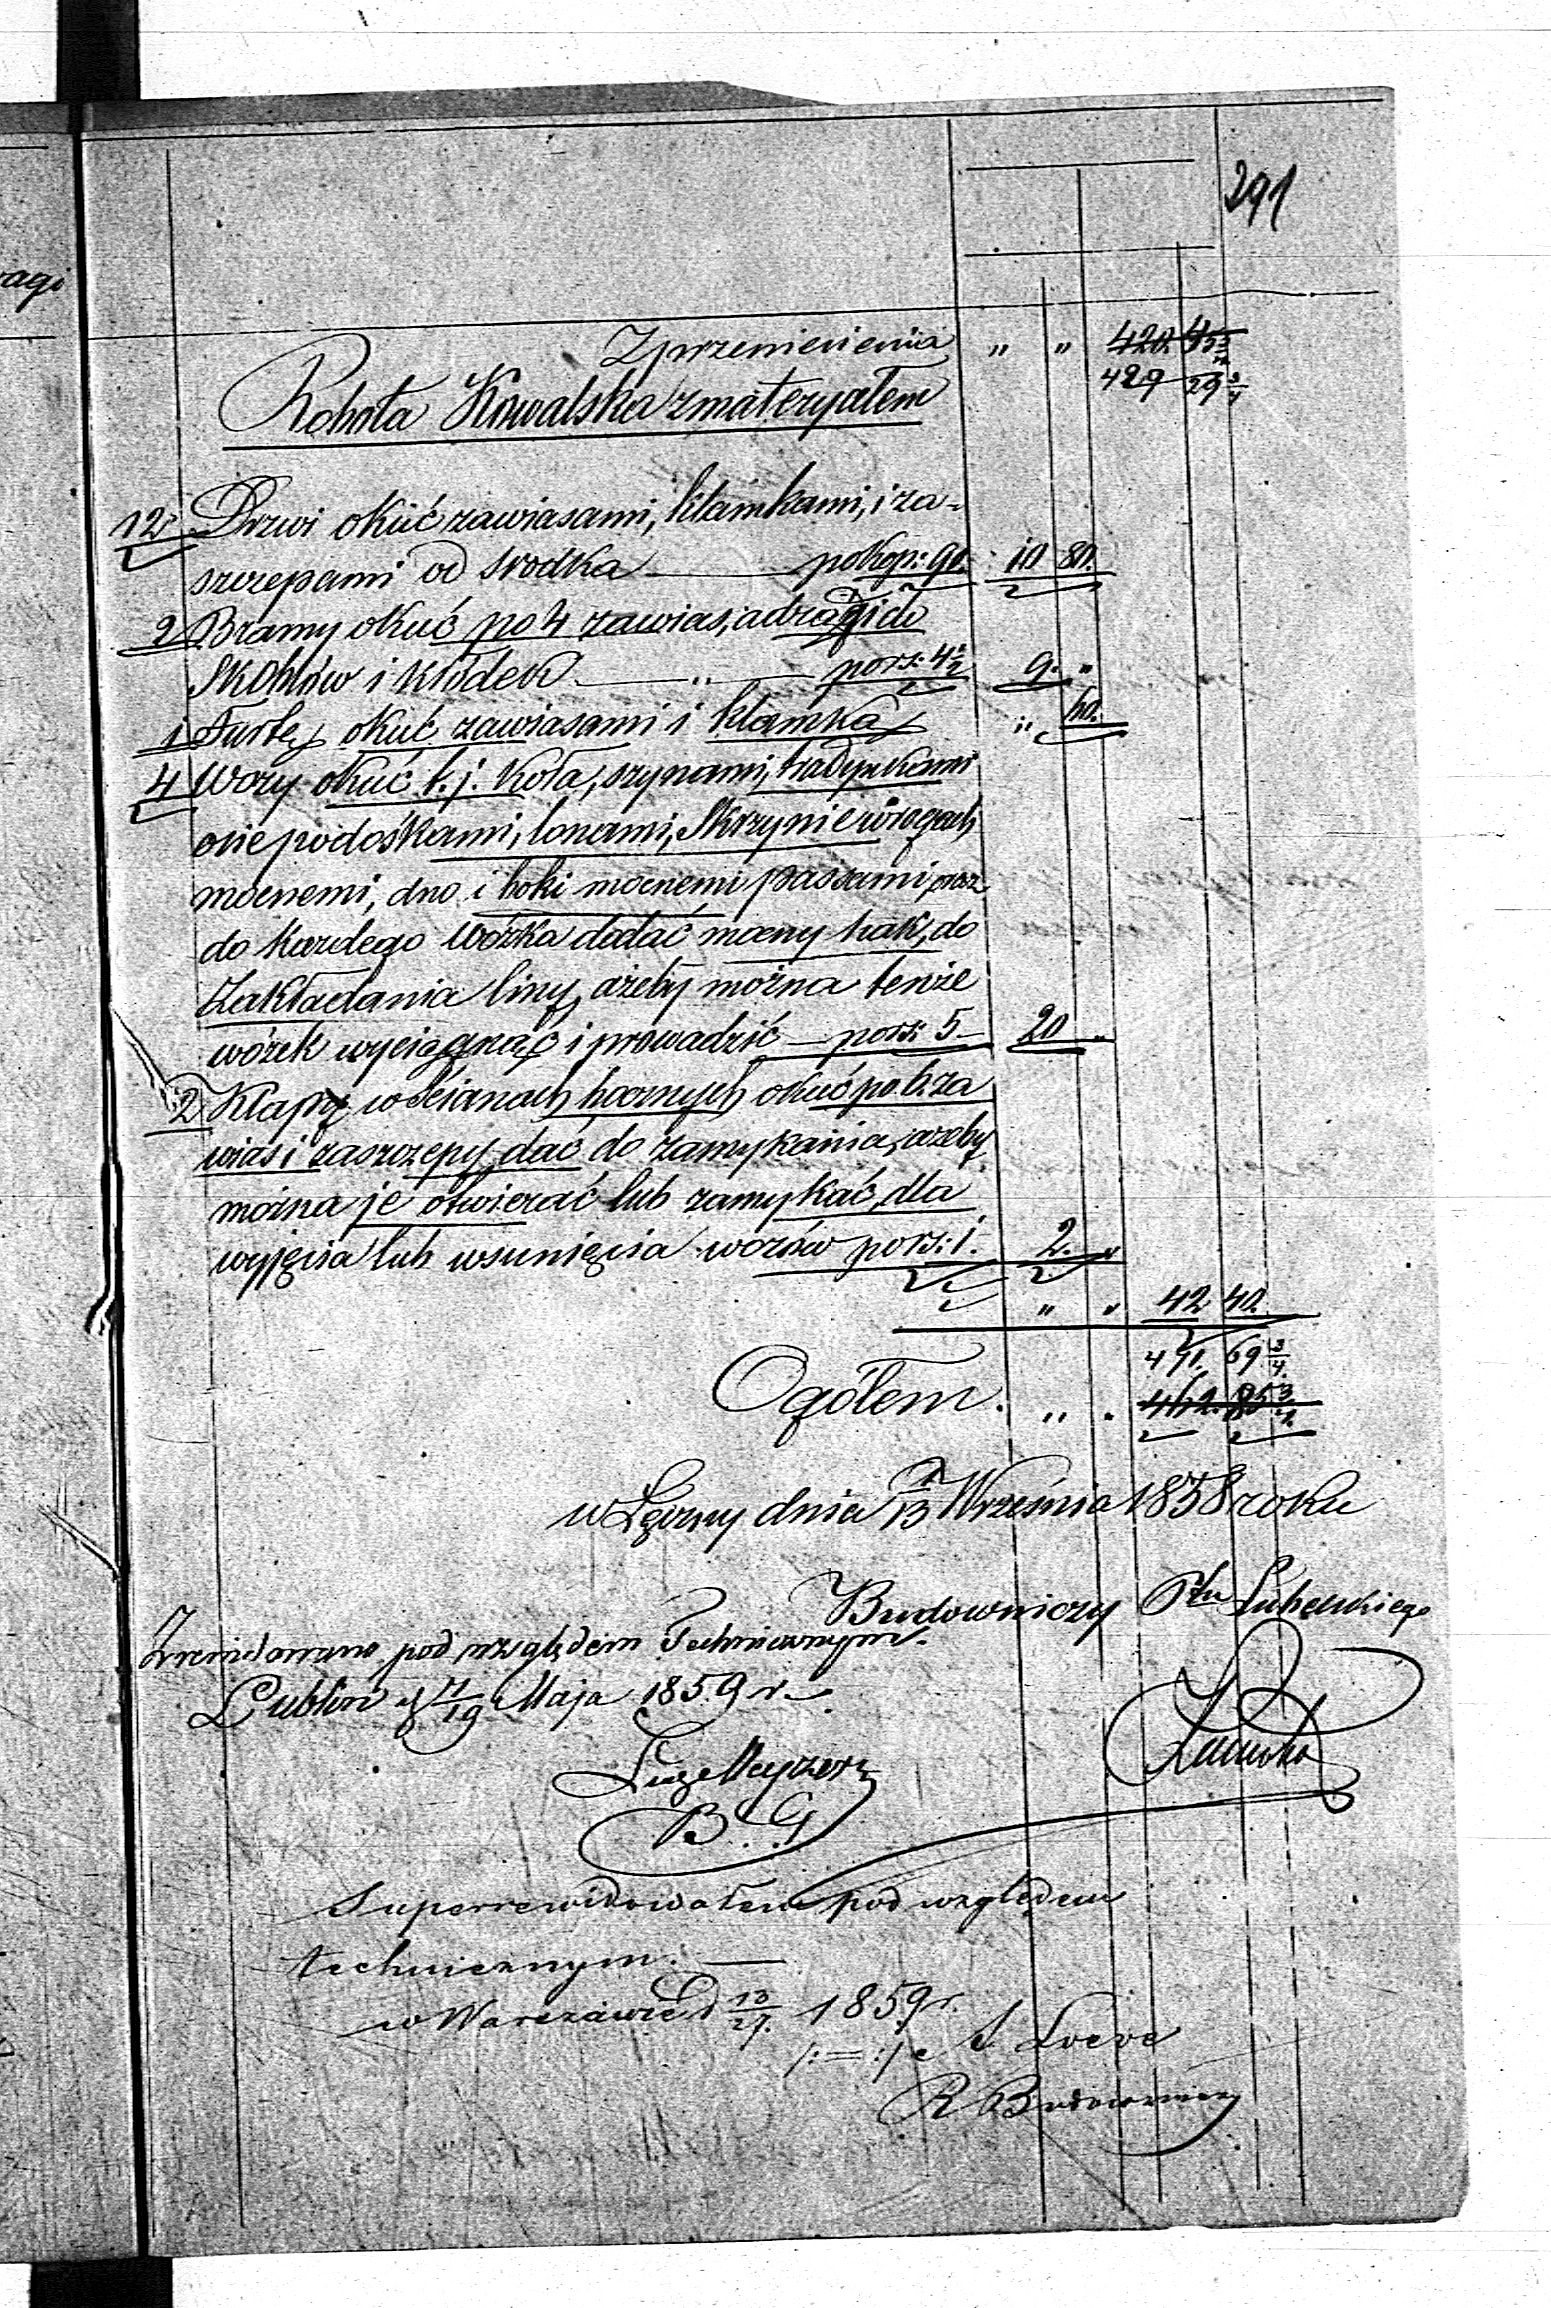 291
Z przeniesienia " " 420. 45 3/4
429 29 3/4
Robota Kowalska z materyałem
12 Drzwi okuć zawiasami, klamkami, i za-
szczepami od srodka — po kop: 90. 10 80.
2 Bramy okuć po 4 zawias, a drągi do
Skoblów i Kłódek — " — po rs: 4½ 9. "
1 Furtkę okuć zawiasami i klamką " 60.
4 Wozy okuć t. j. Koła, szynami,
osie podośkami, lonami, Skrzynie w rogach
mocnemi, dno i boki mocnemi passami, oraz
do każdego wózka dodać mocny hak, do
Zakładania liny, ażeby można tenże
wózek wyciągnąć i prowadzić — po rs: 5 — 20 "
2 Klapy w ścianach bocznych okuć po 2 za
wias i zaszczepy dać do zamykania, ażeby
można je otwierać lub zamykać, dla
wyjęcia lub wsunięcia wozów po rs: 1. 2. "
" " 42 40.
491. 69 3/4.
Ogółem. " . 462. 85 3/4.
w Łęczny dnia 1/13 Września 1858 roku
Budowniczy Ptu Lubelskiego
Zrewidowano pod względem Technicznym.
Lublin d 7/19 Maja 1859 r.
B. G
Superrewidowałem pod względem
technicznym. —
w Warszawie d 13/27. 1859 r.
/:=:/ S Loeve
R Budowniczy